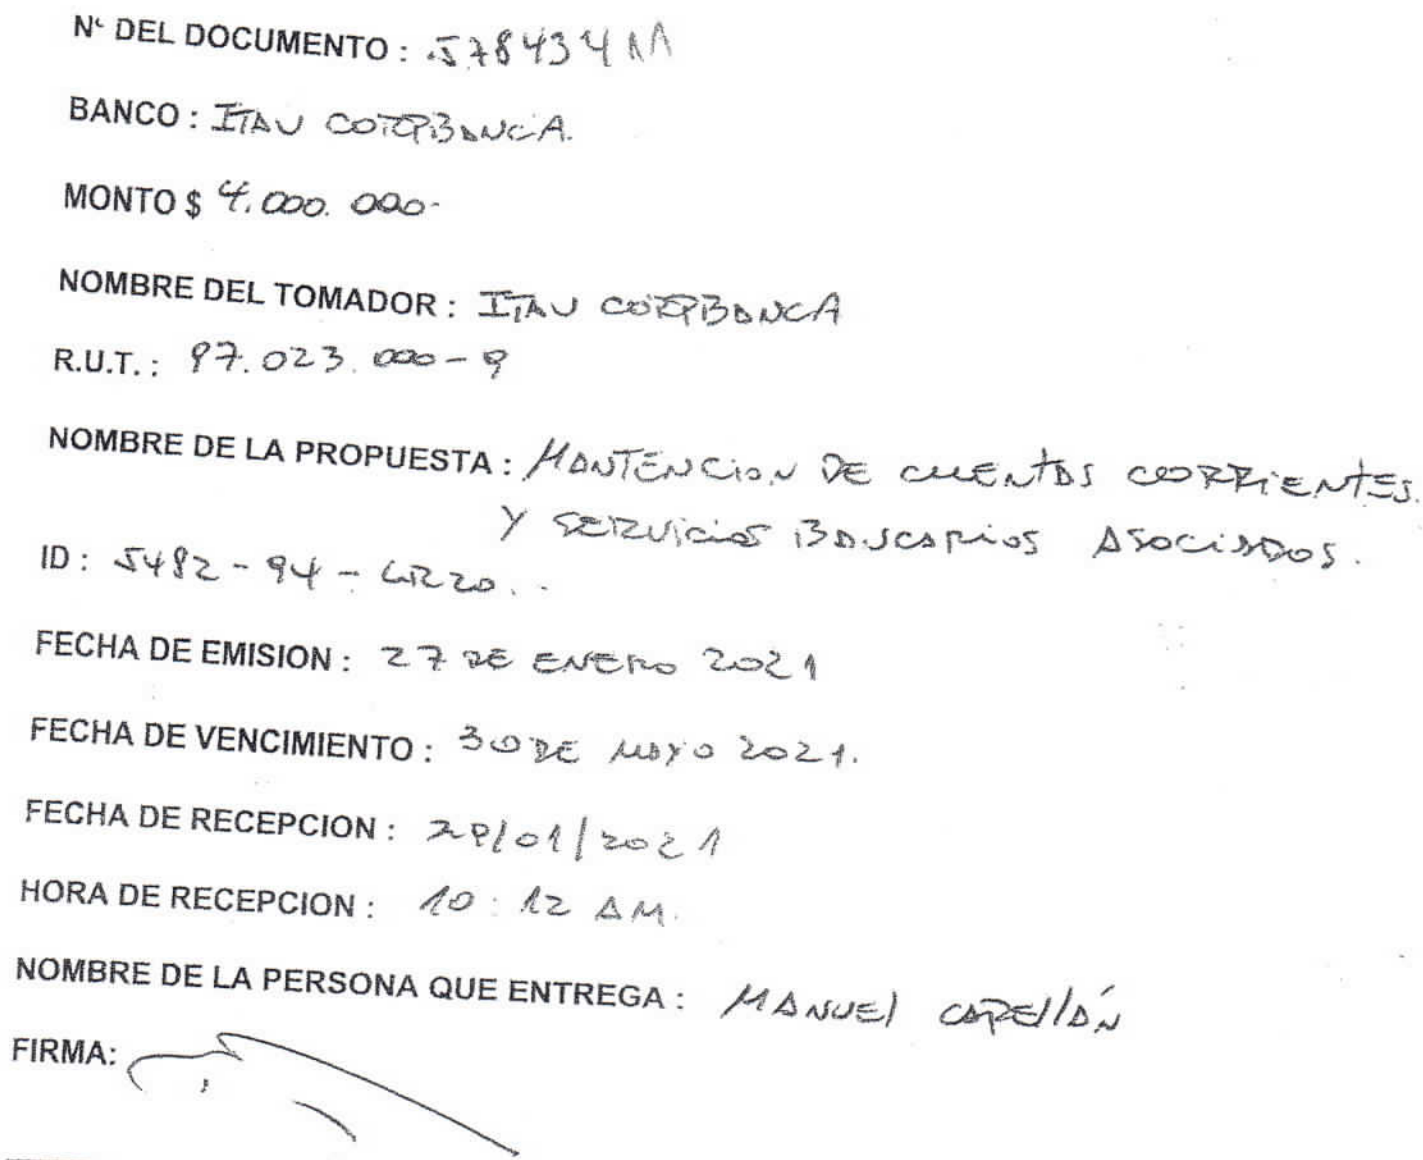 Nº DEL DOCUMENTO : 57843411
BANCO : ITAU CORPBANCA.
MONTO $ 4.000.000-
NOMBRE DEL TOMADOR : ITAU CORPBANCA
R.U.T. : 97.023.000-9
NOMBRE DE LA PROPUESTA : MANTENCION DE CUENTAS CORRIENTES.
Y SERVICIOS BANCARIOS ASOCIADOS.
ID : 5482-94-LR20..
FECHA DE EMISION : 27 DE ENERO 2021
FECHA DE VENCIMIENTO : 30 DE MAYO 2021.
FECHA DE RECEPCION : 29/01/2021
HORA DE RECEPCION : 10:12 AM.
NOMBRE DE LA PERSONA QUE ENTREGA : MANUEL
FIRMA: